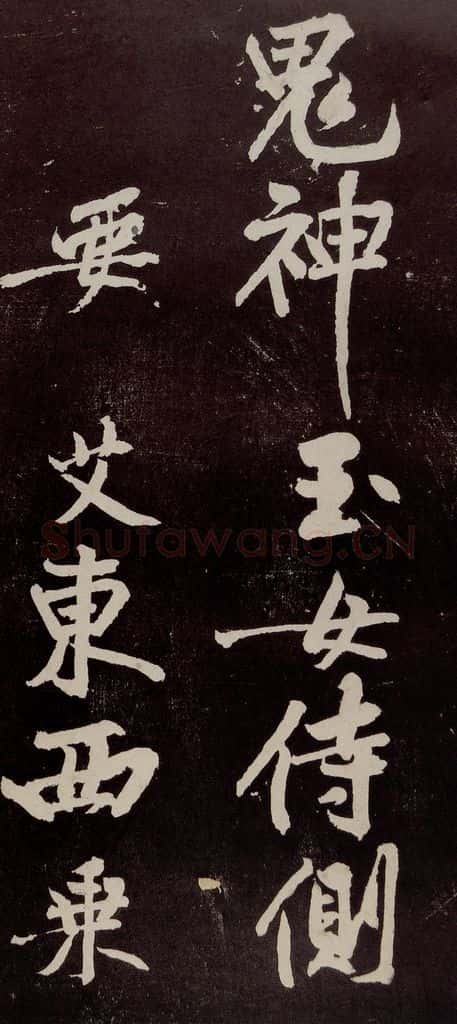 鬼神玉女侍側
要艾東西乘
Shufawang.CN